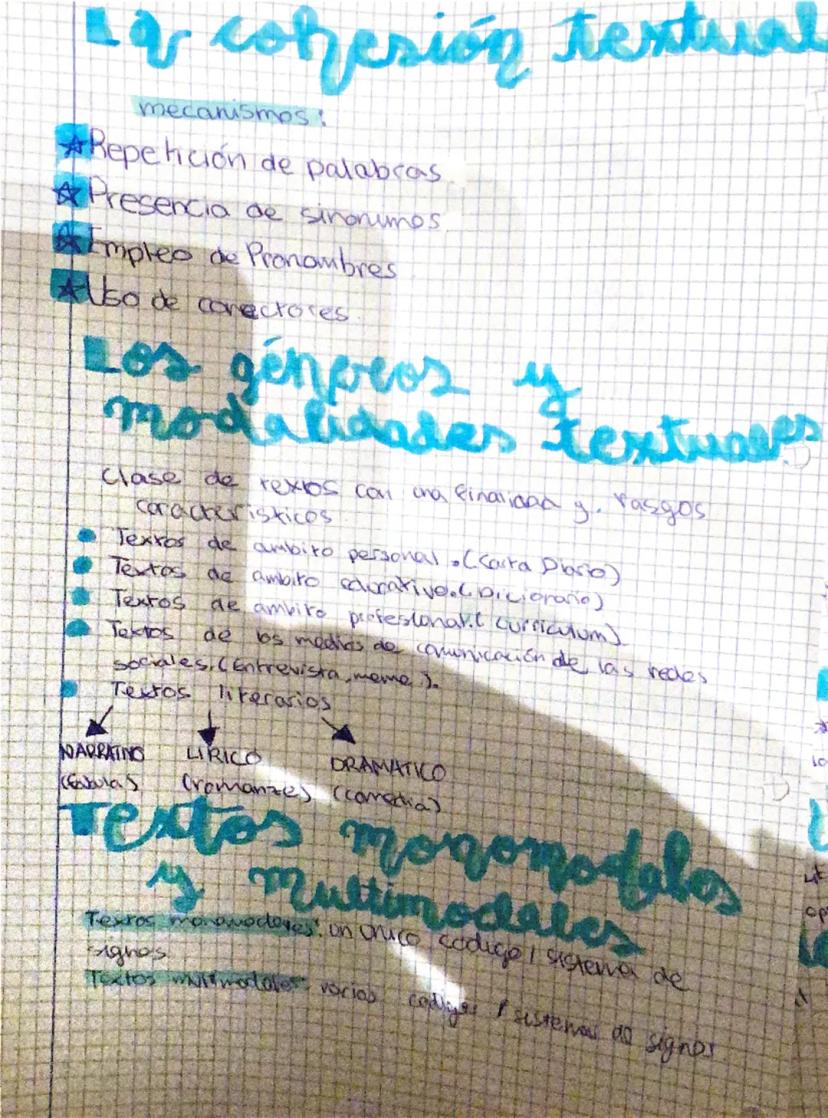 La cohesión textual
mecanismos:
Repetición de palabras.
Presencia de sinonimos.
Empleo de Pronombres
Uso de conectores.
Los géneros y
modalidades textuales
Clase de textos con una finalidad y. rasgos
caracteristicos.
Textos de ambito personal.(Carta Diario)
Textos de ambito educativo.(Diccionario)
Textos de ambito profesional.(curriculum).
Textos de los medios de comunicación de las redes
sociales.(Entrevista, meme).
Textos literarios
NARRATIVO LIRICO DRAMATICO
(fabulas) (romance) (comedia)
Textos monomodales
y multimodales
Textos monomodales: un unico codigo / sistema de
signos
Textos multimodales: varios codigos / sistemas de signos